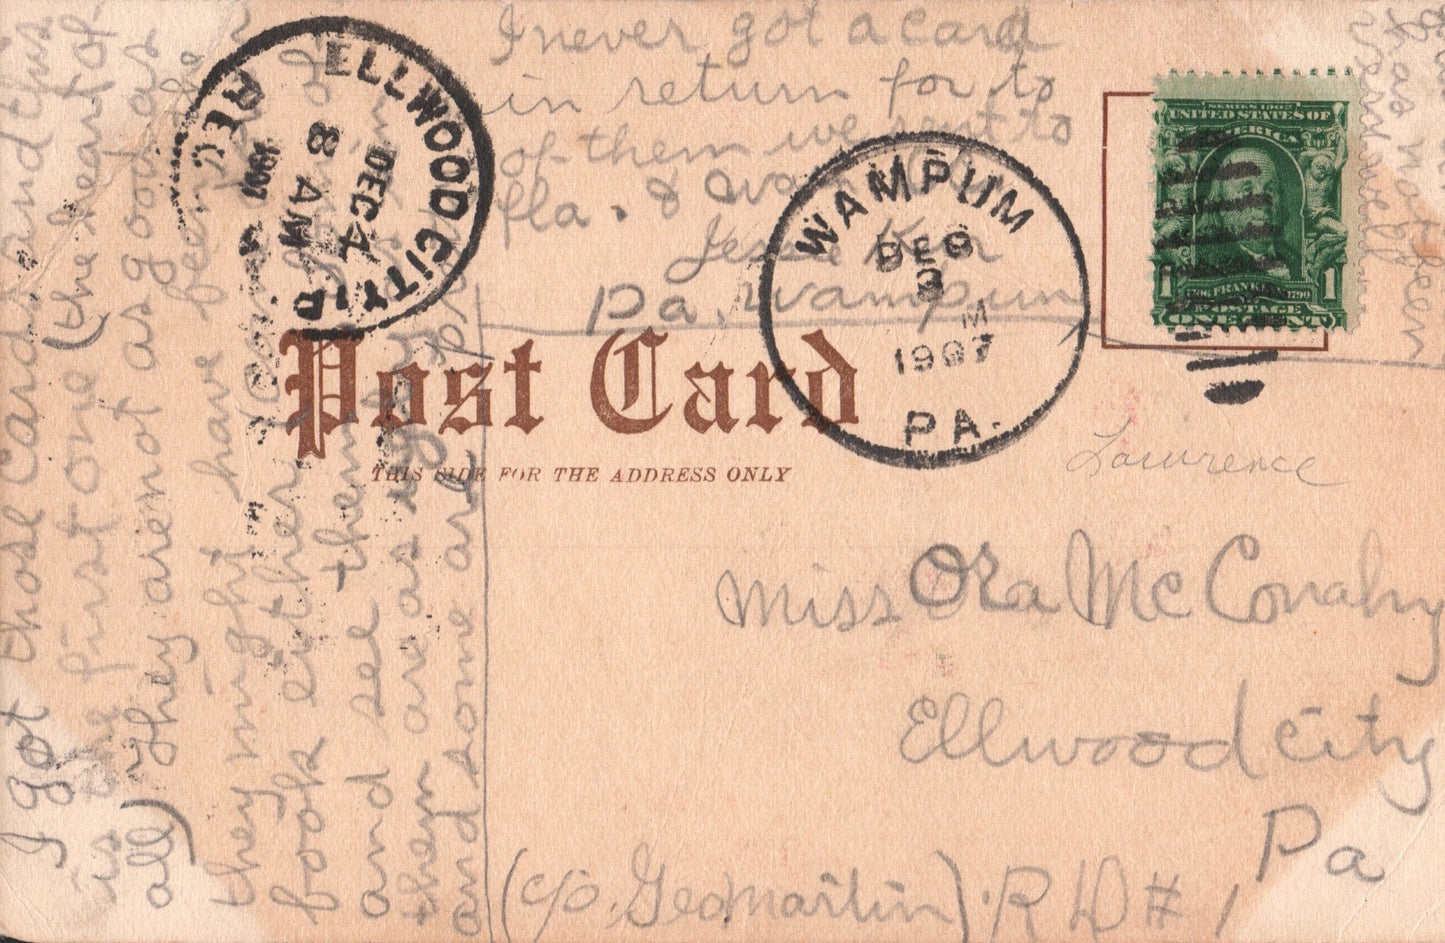 I got those Cards and this
is the first one (the heart of
all) They are not as good as
they might have been. the
look either
and see them
them are as ugly
and some are
I never got a card
in return for to
of them we sent to
fla. &
Jessie Ker
Pa, Wampum
has not been
very well
ELLWOOD CITY, PA
DEC 4
8 AM
1907
REC'D
WAMPUM
DEC
3
M
1907
PA.
SERIES 1902
UNITED STATES OF
AMERICA
1706 FRANKLIN 1790
POSTAGE
1 1
ONE CENT
Post Card
THIS SIDE FOR THE ADDRESS ONLY
Lawrence
Miss Ora McConahy
Ellwood City
Pa
(c/o, Geo Martin). R D # 1